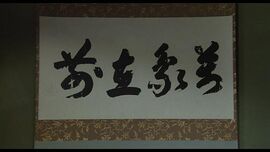 萬象在前